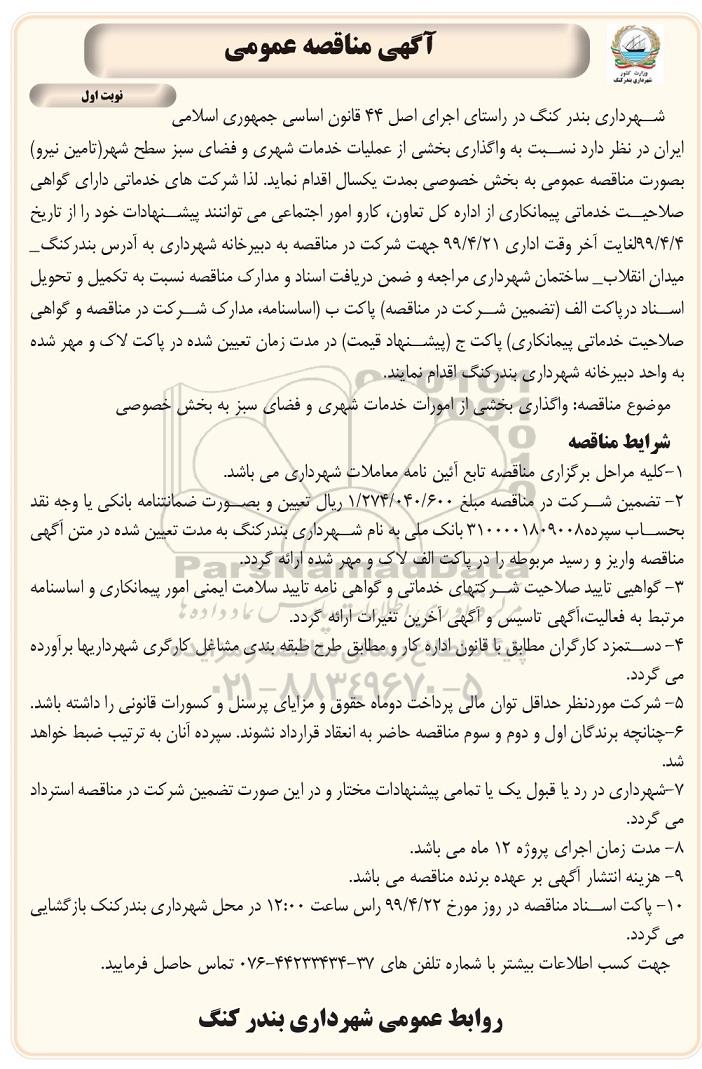 آگهی مناقصه عمومی
وزارت کشور
شهرداری بندر کنگ
نوبت اول
شهرداری بندر کنگ در راستای اجرای اصل ۴۴ قانون اساسی جمهوری اسلامی
ایران در نظر دارد نسبت به واگذاری بخشی از عملیات خدمات شهری و فضای سبز سطح شهر(تامین نیرو)
بصورت مناقصه عمومی به بخش خصوصی بمدت یکسال اقدام نماید. لذا شرکت های خدماتی دارای گواهی
صلاحیت خدماتی پیمانکاری از اداره کل تعاون، کارو امور اجتماعی می تواننند پیشنهادات خود را از تاریخ
۹۹/۴/۴لغایت آخر وقت اداری ۹۹/۴/۲۱ جهت شرکت در مناقصه به دبیرخانه شهرداری به آدرس بندرکنگ_
میدان انقلاب_ ساختمان شهرداری مراجعه و ضمن دریافت اسناد و مدارک مناقصه نسبت به تکمیل و تحویل
اسناد درپاکت الف (تضمین شرکت در مناقصه) پاکت ب (اساسنامه، مدارک شرکت در مناقصه و گواهی
صلاحیت خدماتی پیمانکاری) پاکت ج (پیشنهاد قیمت) در مدت زمان تعیین شده در پاکت لاک و مهر شده
به واحد دبیرخانه شهرداری بندرکنگ اقدام نمایند.
موضوع مناقصه: واگذاری بخشی از امورات خدمات شهری و فضای سبز به بخش خصوصی
شرایط مناقصه
۱-کلیه مراحل برگزاری مناقصه تابع آئین نامه معاملات شهرداری می باشد.
۲- تضمین شرکت در مناقصه مبلغ ۱/۲۷۴/۰۴۰/۶۰۰ ریال تعیین و بصورت ضمانتنامه بانکی یا وجه نقد
بحساب سپرده۳۱۰۰۰۰۱۸۰۹۰۰۸ بانک ملی به نام شهرداری بندرکنگ به مدت تعیین شده در متن آگهی
مناقصه واریز و رسید مربوطه را در پاکت الف لاک و مهر شده ارائه گردد.
۳- گواهیی تایید صلاحیت شرکتهای خدماتی و گواهی نامه تایید سلامت ایمنی امور پیمانکاری و اساسنامه
مرتبط به فعالیت،آگهی تاسیس و آگهی آخرین تغیرات ارائه گردد.
۴- دستمزد کارگران مطابق با قانون اداره کار و مطابق طرح طبقه بندی مشاغل کارگری شهرداریها برآورده
می گردد.
۵- شرکت موردنظر حداقل توان مالی پرداخت دوماه حقوق و مزایای پرسنل و کسورات قانونی را داشته باشد.
۶-چنانچه برندگان اول و دوم و سوم مناقصه حاضر به انعقاد قرارداد نشوند. سپرده آنان به ترتیب ضبط خواهد
شد.
۷-شهرداری در رد یا قبول یک یا تمامی پیشنهادات مختار و در این صورت تضمین شرکت در مناقصه استرداد
می گردد.
۸- مدت زمان اجرای پروژه ۱۲ ماه می باشد.
۹- هزینه انتشار آگهی بر عهده برنده مناقصه می باشد.
۱۰- پاکت اسناد مناقصه در روز مورخ ۹۹/۴/۲۲ راس ساعت ۱۲:۰۰ در محل شهرداری بندرکنک بازگشایی
می گردد.
جهت کسب اطلاعات بیشتر با شماره تلفن های ۳۷-۴۴۲۳۳۴۳۴-۰۷۶ تماس حاصل فرمایید.
روابط عمومی شهرداری بندر کنگ
ParsNamadData
پایگاه اطلاع رسانی مناقصه و مزایده
۰۲۱-۸۸۳۴۹۶۷۰-۵